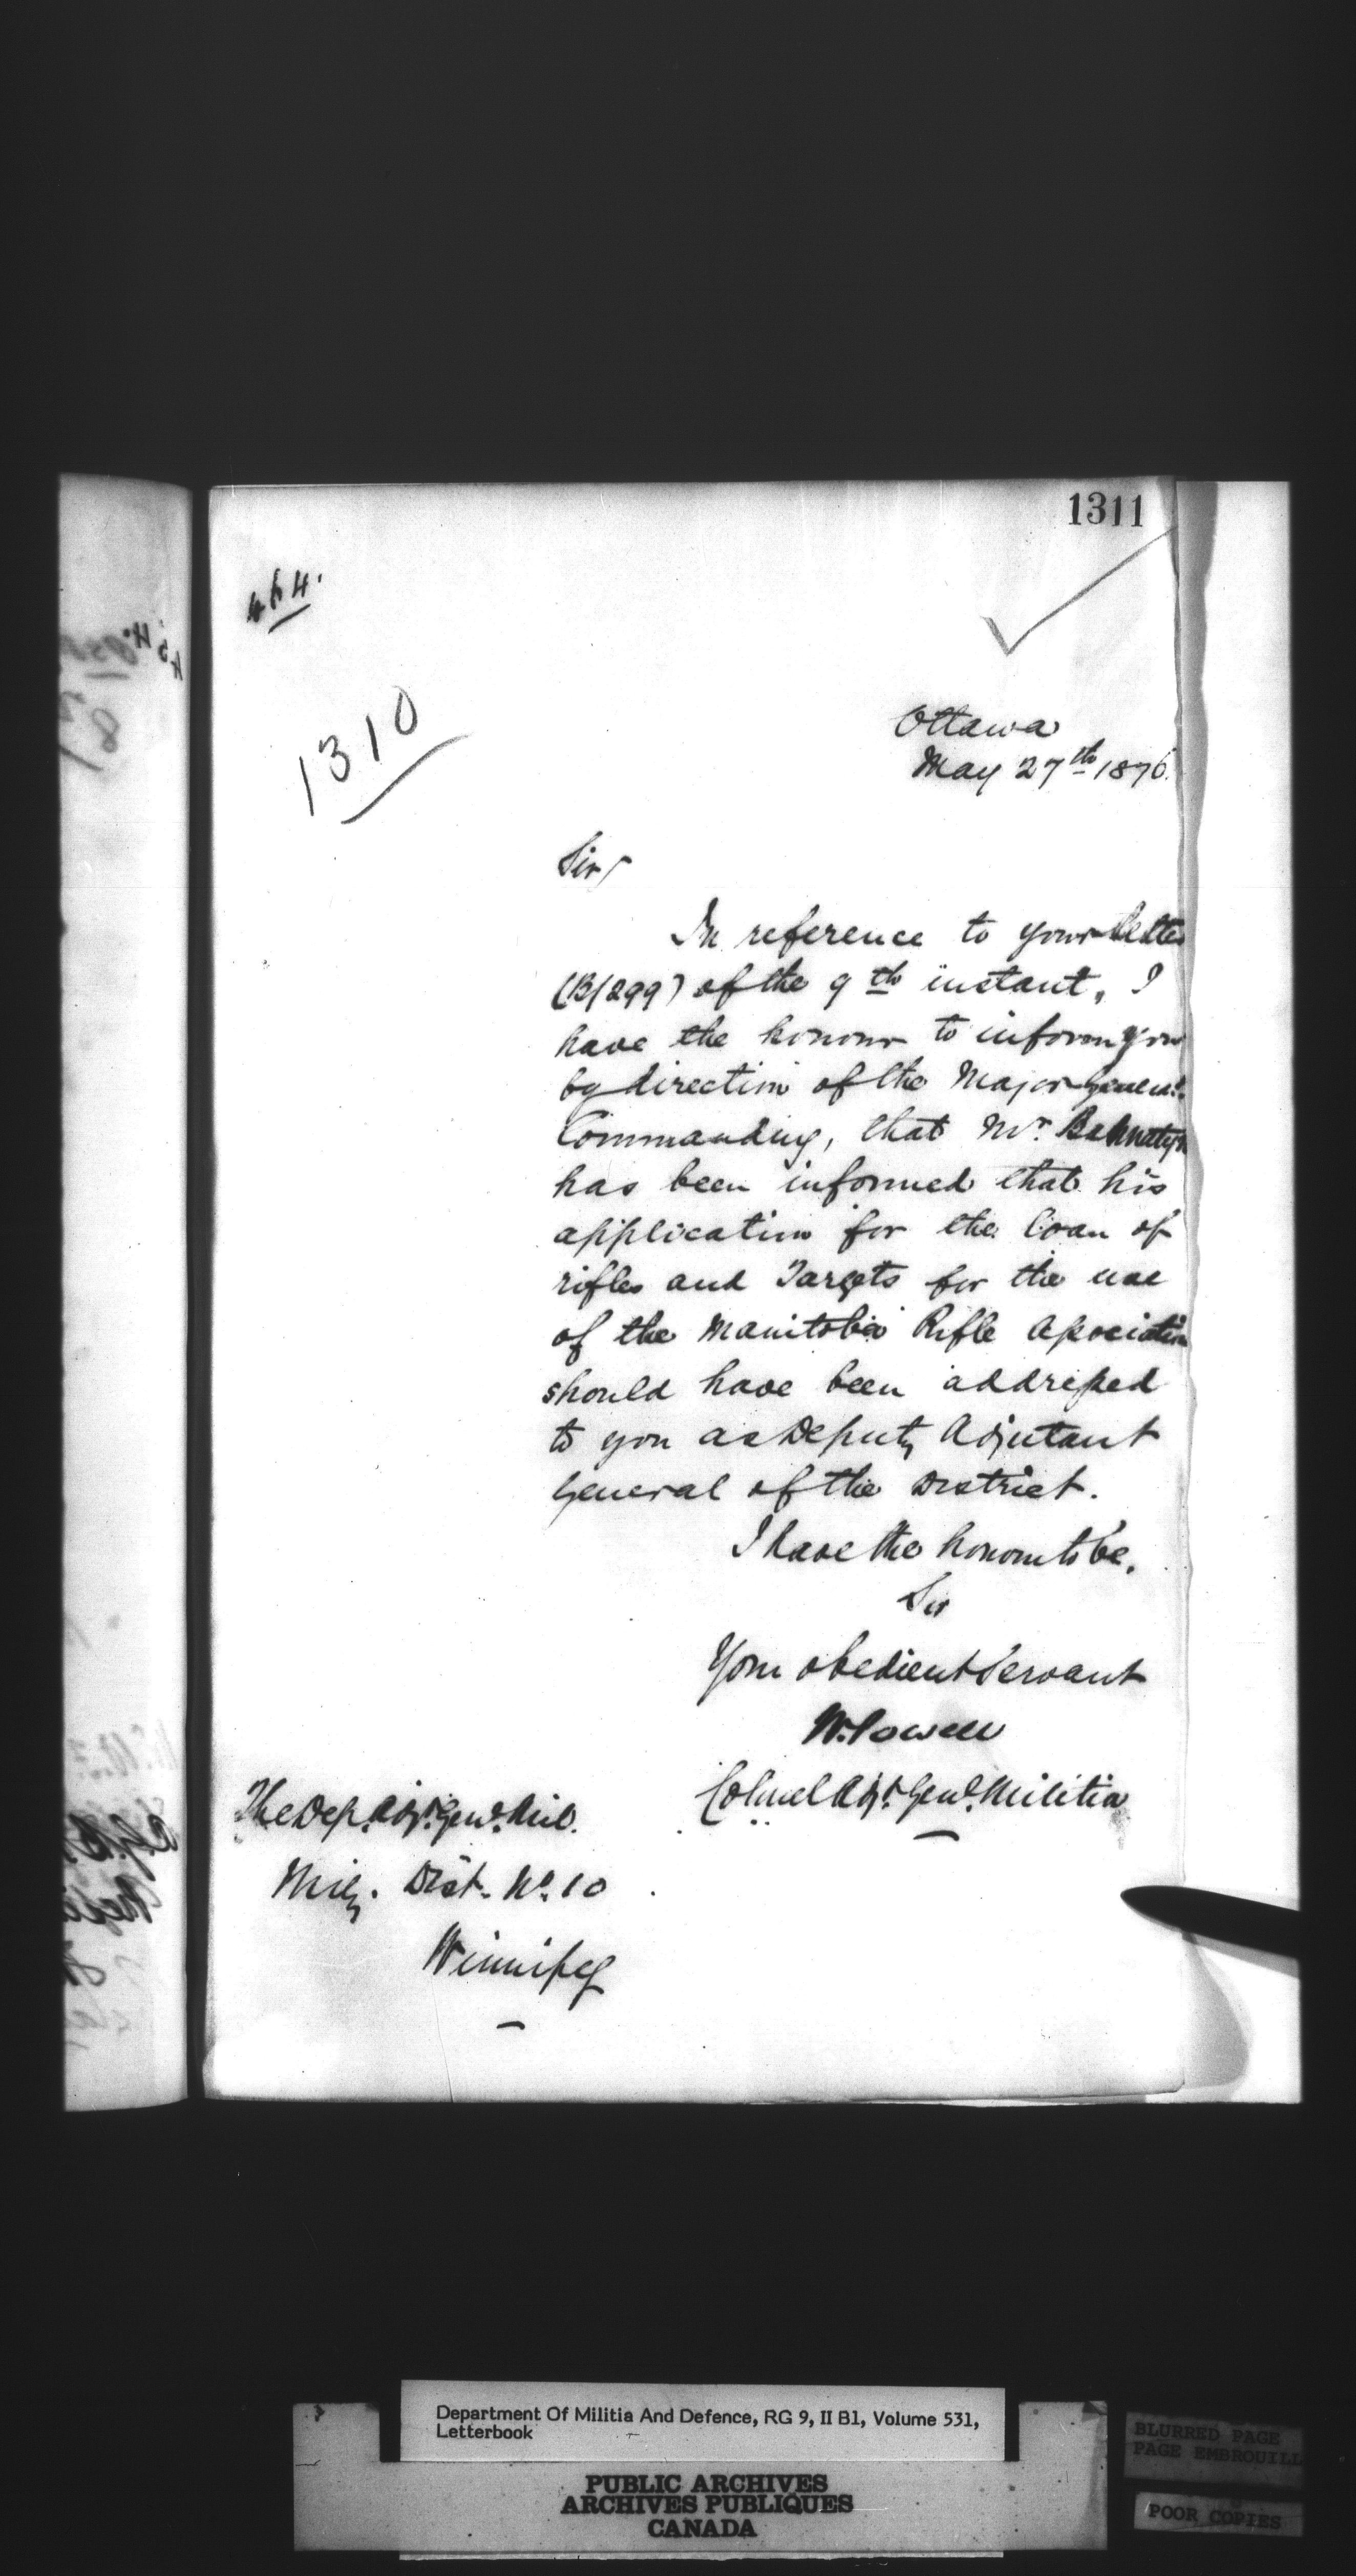 1311
464.
1310
Ottawa
May 27th 1876.
Sir,
In reference to your letter
(B/299) of the 9th instant, I
have the honour to inform you
by direction of the Major General
Commanding, that Mr. Bannatyn
has been informed that his
application for the loan of
rifles and Targets for the use
of the Manitoba Rifle Association
should have been addressed
to you as Deputy Adjutant
General of the District.
I have the honour to be,
Sir
Your obedient Servant
W. Powell
Colonel Adjt. Genl. Militia
The Dep. Adjt. Genl. Mil.
Mily. Dist. No. 10
Winnipeg
Department Of Militia And Defence, RG 9, II B1, Volume 531,
Letterbook
PUBLIC ARCHIVES
ARCHIVES PUBLIQUES
CANADA
BLURRED PAGE
PAGE EMBROUILL
POOR COPIES